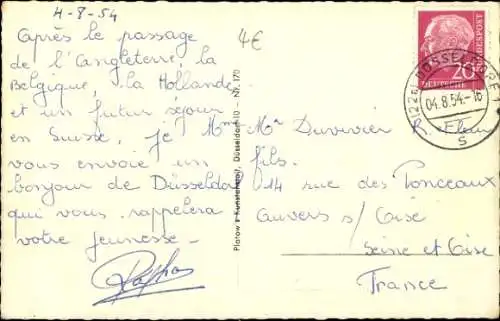 4-8-54
4€
Après le passage
de l'Angleterre, la
Belgique, la Hollande
et un futur séjour
en Suisse, je
vous envoie un
bonjour de Düsseldorf
qui vous rappelera
votre jeunesse-
Düsseldorf 10 - Nr. 170
20
DEUTSCHE
BUNDESPOST
(22a) DÜSSELDORF
04.8.54.-16
s
Mme Mr Duvivier R. Fleur
fils.
014 rue des Ponceaux
Auvers s/ Oise
Seine et Oise
France